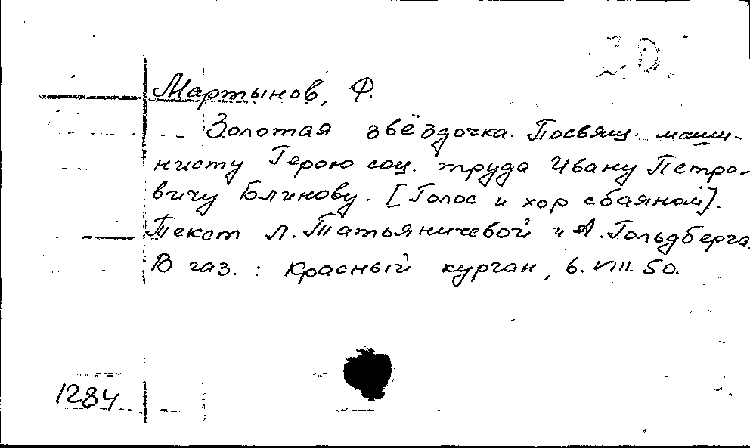 Мартынов, Ф.
Золотая звёздочка. Посвящ. маши-
нисту Герою соц. труда Ивану Петро-
вичу Блинову. [Голос и хор с баяном].
Текст Л. Татьяничевой и А. Гольдберга.
В газ.: Красный курган, 6.VIII.50.
1284